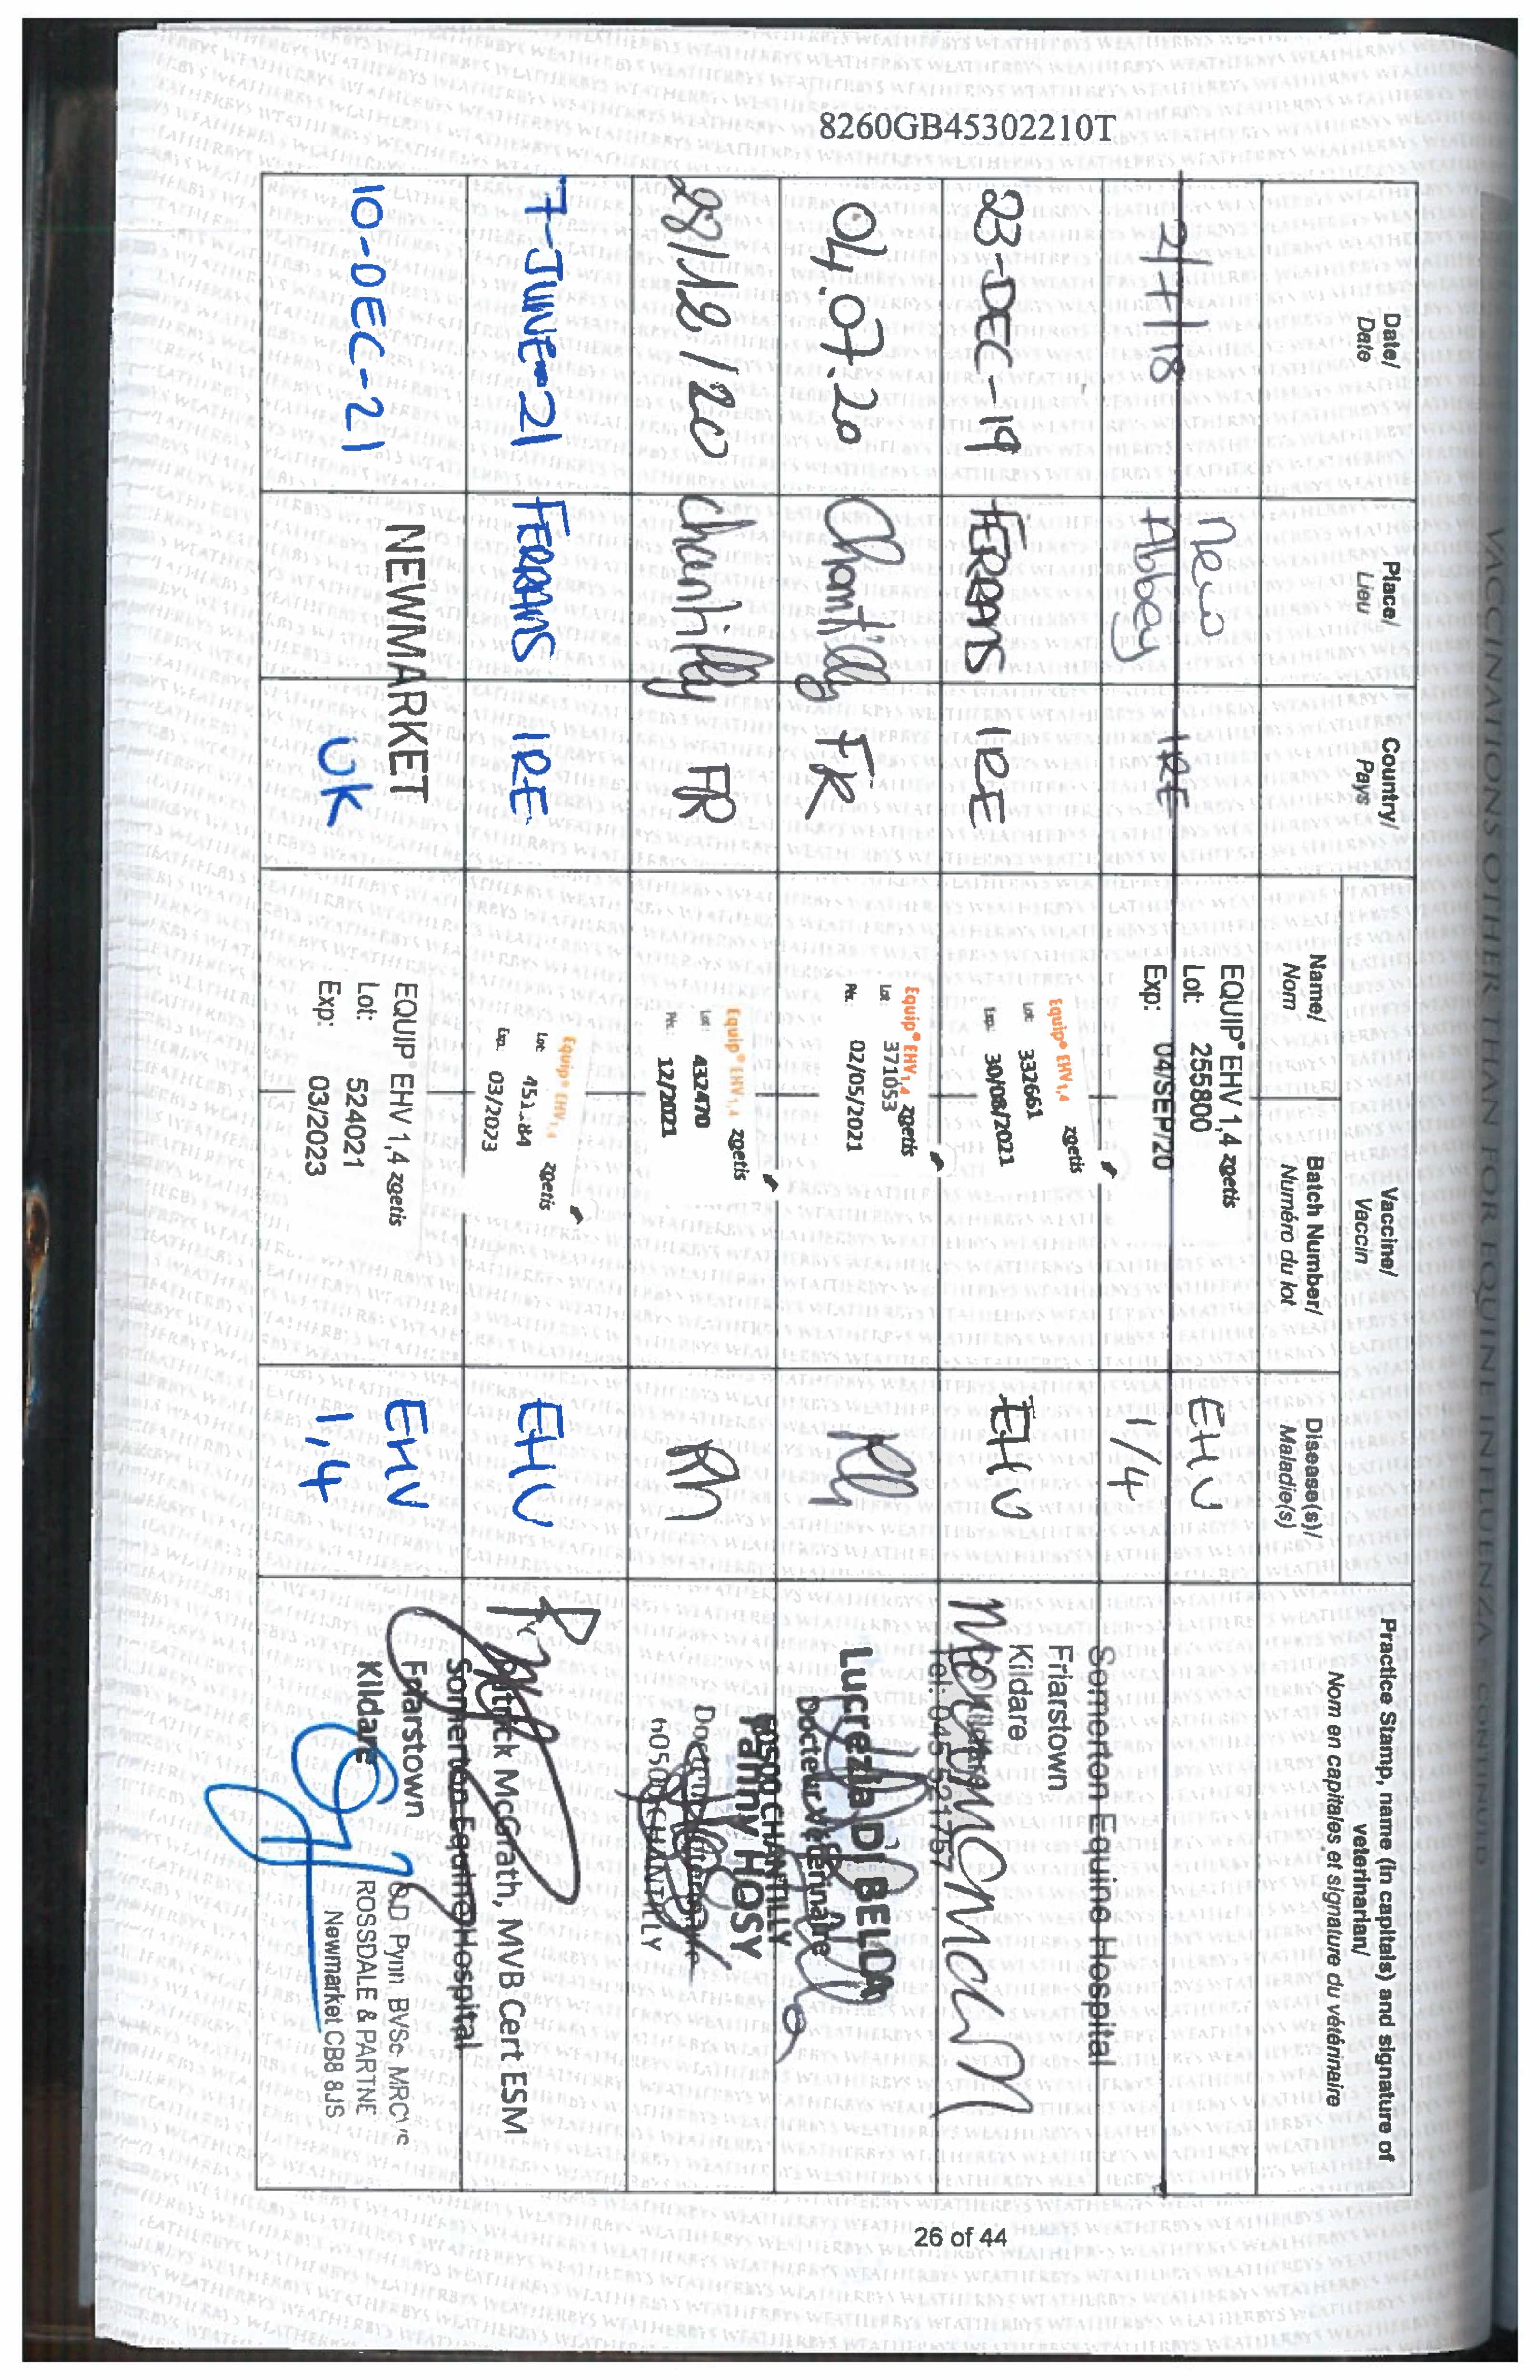 VACCINATIONS OTHER THAN FOR EQUINE INFLUENZA CONTINUED
8260GB45302210T
Date/
Date
Place/
Lieu
Country/
Pays
Vaccine/
Vaccin
Name/
Nom
Batch Number/
Numéro du lot
Disease(s)/
Maladie(s)
Practice Stamp, name (in capitals) and signature of
veterinarian/
Nom en capitales et signature du vétérinaire
New
Abbey
IRE
EQUIP® EHV 1,4 zoetis
Lot: 255800
Exp: 04/SEP/20
EHV
1/4
23-DEC-19
FERRANS
IRE
Equip® EHV1,4 zoetis
Lot: 332661
Exp: 30/08/2021
EHV
Somerton Equine Hospital
Friarstown
Kildare
Tel: 045 521757
04.07.20
Chantilly
FR
Equip® EHV1,4 zoetis
Lot: 371053
Pér. 02/05/2021
Lucrezia DI BELLA
Docteur Vétérinaire
60500 CHANTILLY
28/12/20
Chantilly
FR
Equip® EHV1,4 zoetis
Lot: 432470
Pér. 12/2021
Rh
Fanny HOSY
Docteur Vétérinaire
60500 CHANTILLY
7-JUNE-21
FERRANS
IRE
Equip® EHV1,4 zoetis
Lot:
Exp. 03/2023
EHV
Patrick McGrath, MVB Cert ESM
Somerton Equine Hospital
Friarstown
Kildare
10-DEC-21
NEWMARKET
UK
EQUIP® EHV 1,4 zoetis
Lot: 524021
Exp: 03/2023
EHV
1,4
O.D Pynn BVSc MRCVS
ROSSDALE & PARTNE
Newmarket CB8 8JS
26 of 44